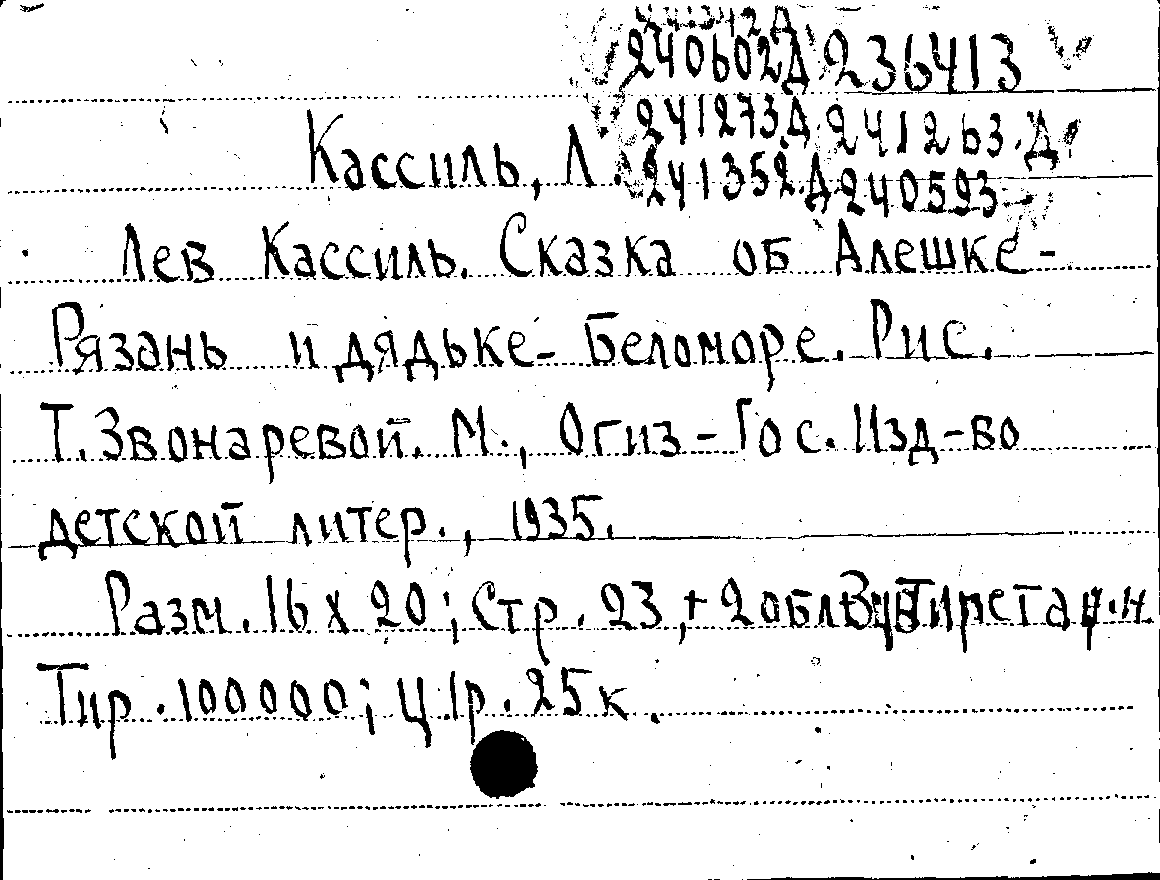 240602Д 236413
241273Д 241263.Д
Кассиль, Л. 241352Д 240593
Лев Кассиль. Сказка об Алешке-
Рязань и дядьке-Беломоре. Рис.
Т. Звонаревой. М., Огиз-Гос. Изд-во
детской литер., 1935.
Разм. 16 х 20; Стр. 23, + 2 обл.
Тир. 100000; ц. 1р. 25к.